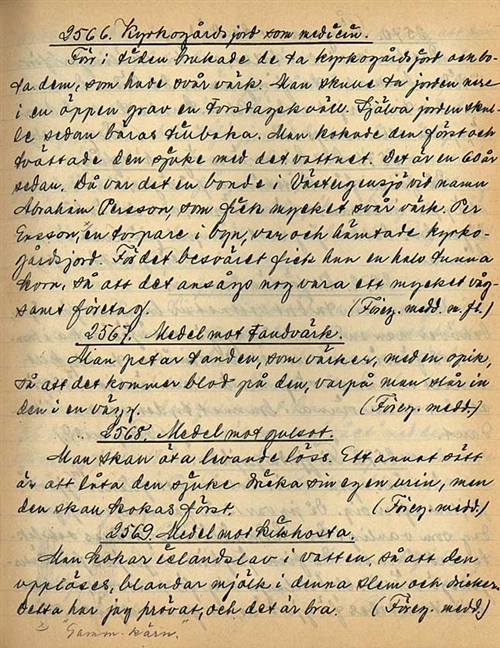 2566. Kyrkogårdsjord som medicin.
Förr i tiden brukade de ta kyrkogårdsjord och bo-
ta dem, som hade svår värk. Man skulle ta jorden nere
i en öppen grav en Torsdagskväll. Själva jorden skul-
le sedan bäras tillbaka. Man kokade den först och
tvättade den sjuke med det vattnet. Det är en 60 år
sedan. Då var det en bonde i Västergensjö vid namn
Abraham Persson, som fick mycket svår värk. Per
Ersson, en torpare i byn, var och hämtade kyrko-
gårdsjord. För det besväret fick han en halv tunna
korn, så att det ansågs nog vara ett mycket våg-
samt företag. (Föreg. medd. m. fl.)
2567. Medel mot Tandvärk.
Man petar tanden, som värker, med en spik,
så att det kommer blod på den, varpå man slår in
den i en vägg. (Föreg. medd.)
2568. Medel mot gulsot.
Man skall äta levande löss. Ett annat sätt
är att låta den sjuke dricka sin egen urin, men
den skall kokas först. (Föreg. medd.)
2569. Medel mot kikhosta.
Man kokar islandslav i vatten, så att den
upplöses, blandar mjölk i denna slem och dricker.
Detta har jag prövat, och det är bra. (Föreg. medd.)
"Gamm-kärn."